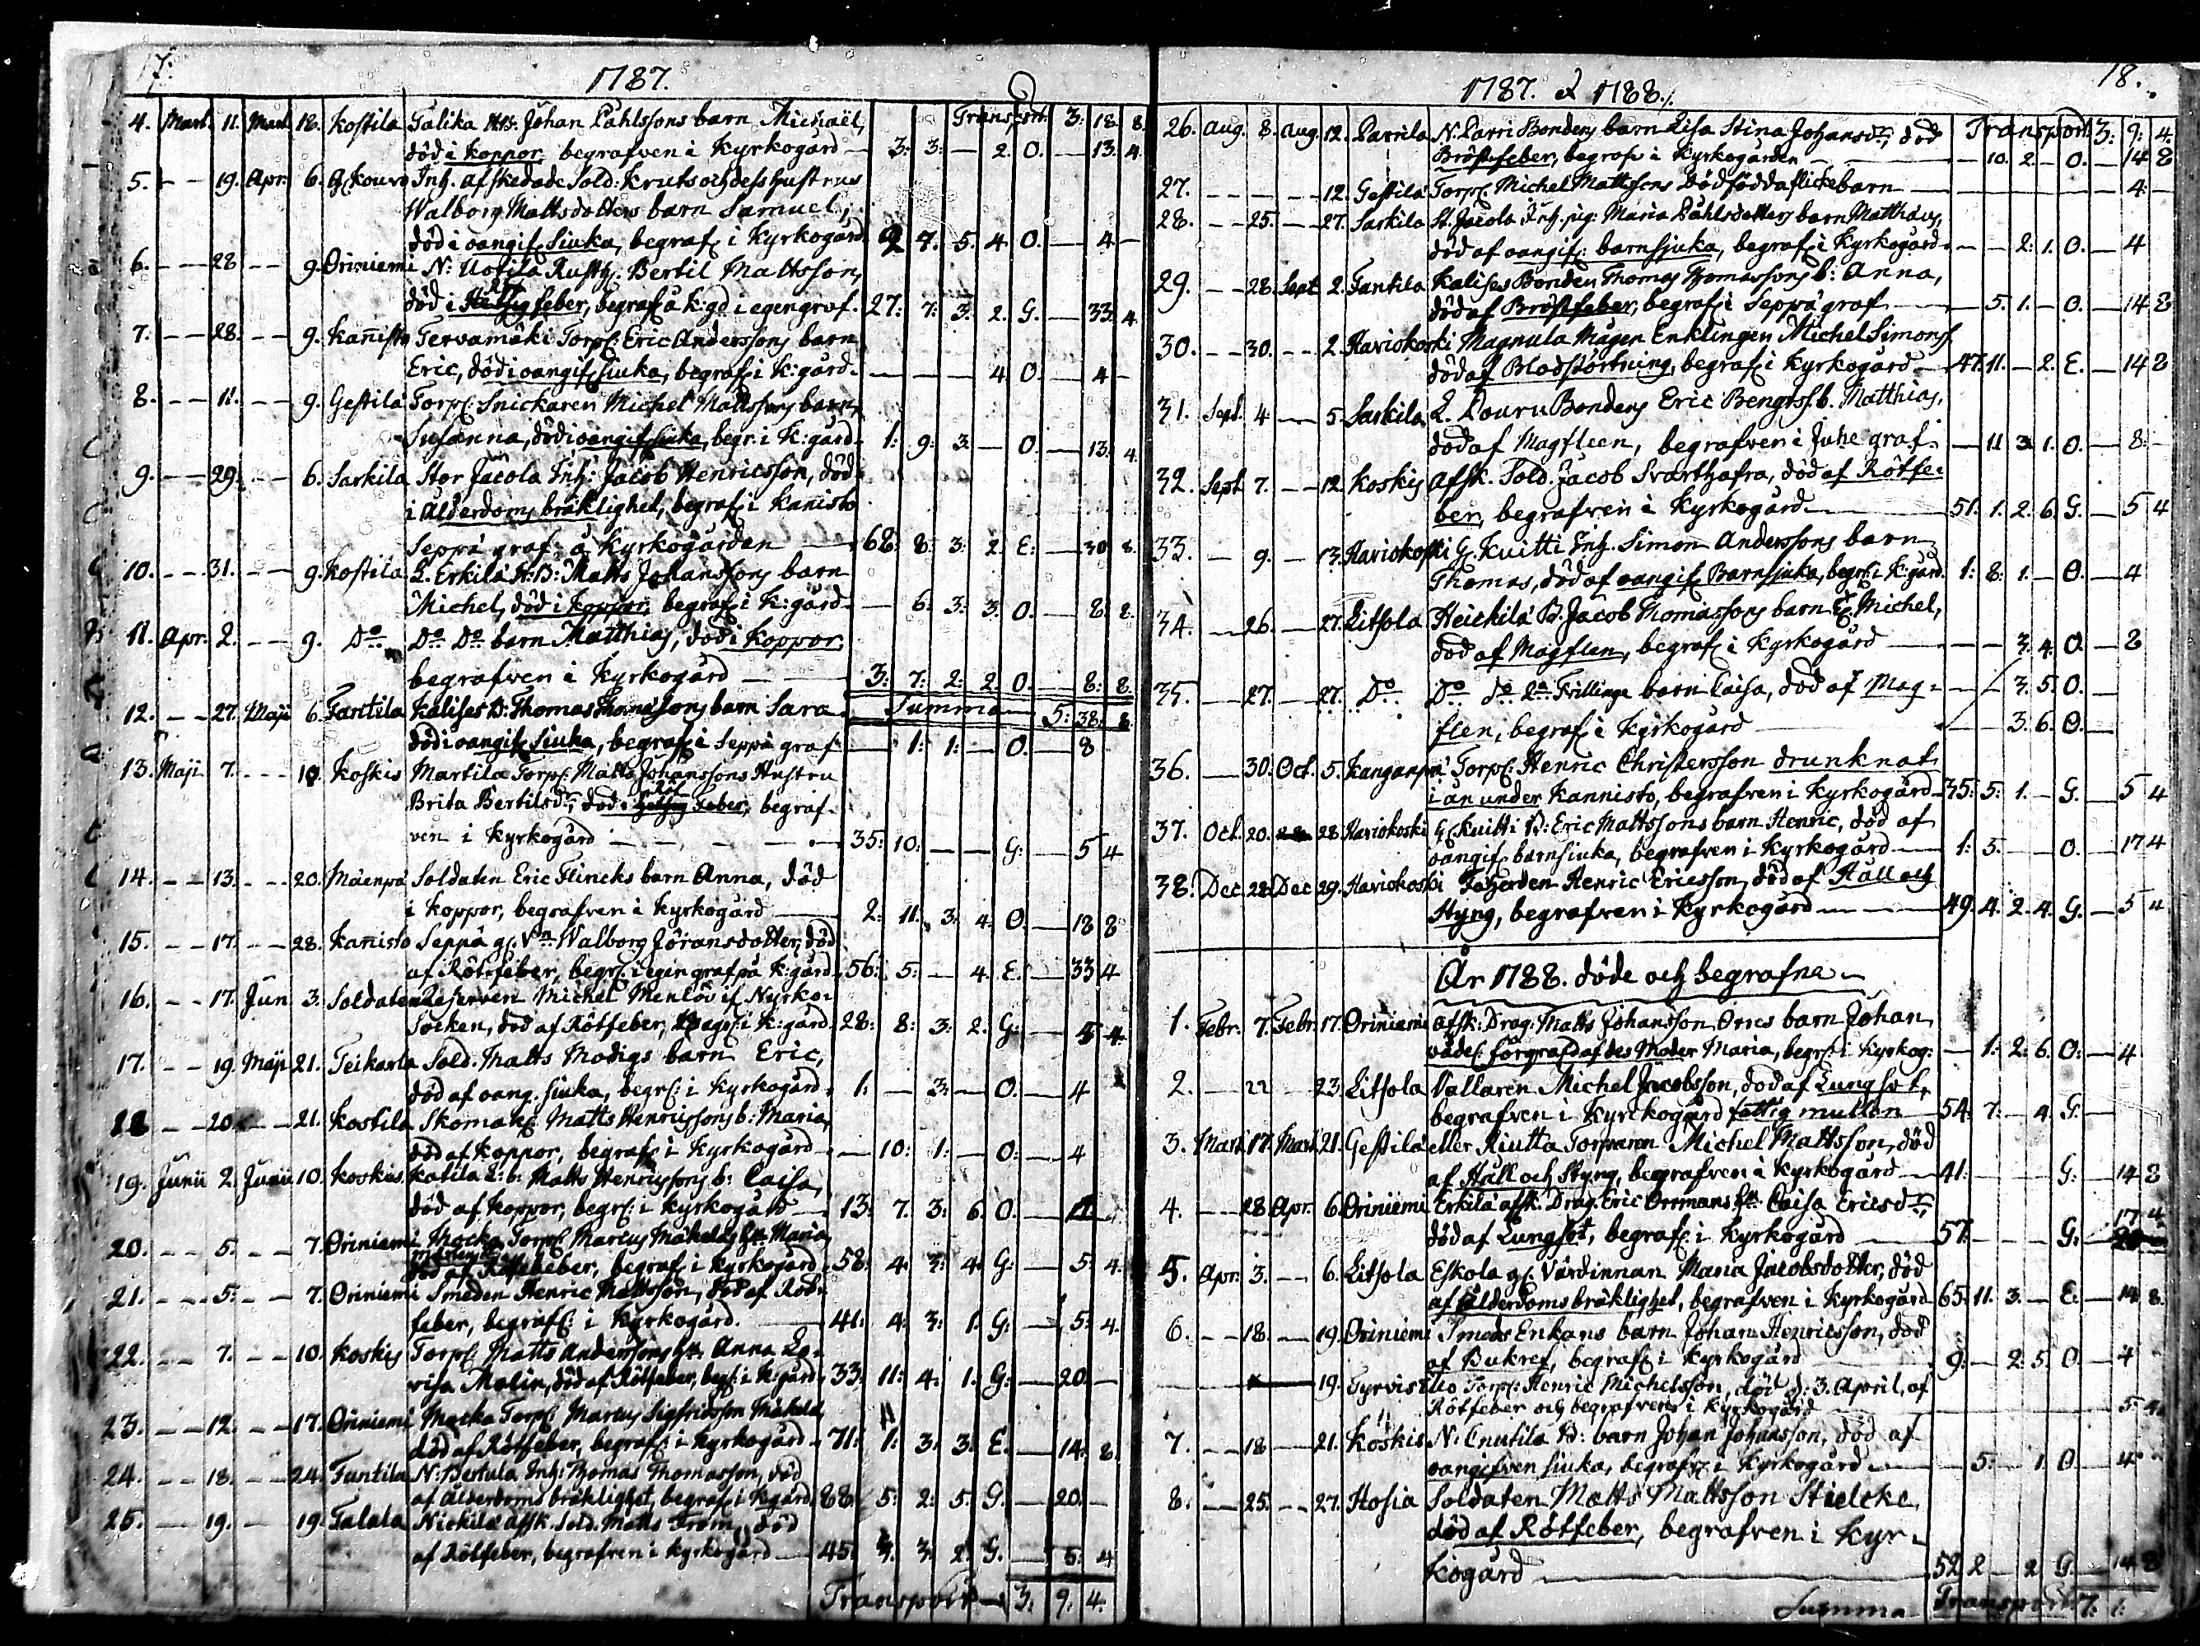 17.
1787.
Transport. 3: 18. 8.
4. Mart. 11. Mart. 18. Kostila Talika Johan Påhlssons barn Michaël,
död i koppor, begrafven i Kyrkogård — 3: 3: — 2. O. — 13. 4
5. — 19. Apr. 6. Inh. afskedade Sold: Kruts och dess Hustrus
Walborg Mattsdotters barn Samuel,
död i oangif. Siuka, begraf. i Kyrkogård 7. 5. 4. O. — 4 —
6. — 28 — 9. Oriniemi N: Uotila Rusth. Bertil Mattsson,
död i feber, begraf. å k:gd i egen graf. 27: 7: 3. 2. G. — 33. 4
7. — 28. — 9. Kanisto Tervamäki Torp. Eric Anderssons barn
Eric, död i oangif. siuka, begraf. i K:gård. — 4 O. — 4 —
8. — 11. — 9. Gestilä Torp. Snickaren Michel Mattssons barn
Susanna, död i oangif. siuka, begr. i K:gård. 1: 9: 3: — O. — 13: 4
9. — 29. — 6. Sarkila Stor Jacola Inh: Jacob Henricsson, död
i Ålderdoms bräklighet, begraf. i Kanisto
Seppä graf å Kyrkogården — 68: 8: 3: 2. E: — 30 8
10. — 31. — 9. Kostila L. Erkilä Matts Johanssons barn
Michel, död i koppor, begraf. i K:gård — 6: 3: 3. O. — 8: 8.
11. Apr. 2. — 9. Do Do Do barn Matthias, död i koppor,
begrafven i Kyrkogård — 3: 7: 2: 2. O. — 8: 8
12. — 27. Maji 6. Tantila Kalises B: Thomas Thomassons barn Sara Summa 5: 38: 8
död i oangif. Siuka, begraf. i Seppä graf — 1: 1: — O. — 8
13. Maji 7. — 10. Koskis Martila Torp. Matts Johanssons Hustru
Brita Bertilsdr, död i Röt feber, begraf-
ven i Kyrkogård — 35: 10: — G: — 5 4
14. — 13. — 20. Mäenpä Soldaten Eric Flincks barn Anna, död
i koppor, begrafven i Kyrkogård 2: 11. 3: 4. O. — 18 8
15. — 17. — 28. Kanisto Seppä g. Vn Walborg Jöransdotter, död
af Rötfeber, begr. i egen graf på K:gård 56: 5: — 4. E: — 33 4
16. — 17. Jun. 3. Soldaten Michel Menlös if. Nyrko-
Socken, död af Rötfeber, i K:gård. 28: 8: 3: 2. G: — 5 4
17. — 19. Maji 21. Teikarla Sold. Matts Modigs barn Eric,
död af oang. siuka, begr. i Kyrkogård. 1: — 3: — O. — 4
18 — 20 — 21. Kostila Skomak. Matts Henricssons b: Maria,
död af koppor, begraf. i Kyrkogård — 10: 1: — O: — 4
19. Junii 2. Junii 10. Koskis Katila L: b: Matts Henricssons b: Caisa,
död af koppor, begr. i Kyrkogård — 13: 7. 3: 6. O. —
20. — 5. — 7. Oriniemi Mocka Torp. Marcus Mäkeläs Maria,
död af Rötfeber, begraf. i Kyrkogård 58: 4: 3: 4. G: — 5: 4
21. — 5: — 7. Oriniemi Smeden Henric Mattsson, död af Röt-
feber, begraf. i Kyrkogård. — 41: 4: 3: 1. G: — 5: 4.
22. — 7. — 10. Koskis Torp. Matts Anderssons Anna Lo-
visa Malin, död af Rötfeber, begr. i K:gård, 33: 11: 4: 1. G: — 20: —
23. — 12. — 17. Oriniemi Mocka Torp. Marcus Sigfridsson Mäkelä,
död af Rötfeber, begraf. i Kyrkogård 71: 1: 3: 3: E. — 14: 8.
24. — 18. — 24. Funtila N: Bertula Inh: Thomas Thomasson, död
af ålderdoms bräklighet, begraf. i Kgård 88: 5: 2: 5. G. — 20. —
25. — 19. — 19. Talala Nickilä affk. Sold. Matts From, död
af Rötfeber, begrafven i Kyrkogård — 45: 3: 2. G. — 5: 4
Transport — 3: 9: 4.
18.
1787. & 1788.
26. Aug. 8. Aug. 12. Parrila N. Parri Bondens barn Lisa Stina Johansdr, död Transport 3: 9: 4.
Bröstfeber, begraf. i Kyrkogården — 10. 2. — O. — 14 8
27. — 12. Gestilä Torp. Michel Mattssons Dödfödda flickebarn — 4: —
28. — 25. — 27. Sarkila St. Jacola Inh. pig. Maria Påhlsdotters barn Matthæus,
död af oangif. barnsjuka, begraf. i Kyrkogård. — 2: 1. O. — 4
29. — 28. Sept. 2. Tantila Kalises Bonden Thomas Thomassons b: Anna,
död af Bröstfeber, begraf. i Seppä graf — 5. 1. — O. — 14 8
30. — 30. — 2. Haviokoski Magnula Mågen Enklingen Michel Simons.
död af Blodstörtning, begraf. i Kyrkogård — 47. 11. — 2. E. — 14 8
31. Sept. 4 — 5 Sarkila L. Douru Bondens Eric Bengts. b. Matthias,
död af Magfleen, begrafven i Juhe graf. — 11 3. 1. O. — 8: —
32. Sept. 7. — 12. Koskis Afsk. Sold. Jacob Svarthafra, död af Rötfe-
ber, begrafven i Kyrkogård — 51. 1. 2. 6. G. — 5 4
33. — 9. — 13. Haviokoski G. Kuitti Inh. Simon Anderssons barn
Thomas, död af oangif. Barnsjuka, begr. i K:gård. 1: 8: 1. — O. — 4
34. — 26. — 27. Litsola Heickilä B. Jacob Thomassons barn Michel,
död af Magflen, begraf. i Kyrkogård — 3. 4. O. — 8
35. — 27. — 27. Do Do do Trillinge barn Caisa, död af Mag- 3. 5. O. —
flen, begraf. i Kyrkogård 3. 6. O. —
36. — 30. Oct. 5. Kanganpä Torp. Henric Christersson drunknat
i ån under Kannisto, begrafven i Kyrkogård. 35: 5: 1. — G. — 5 4
37. Oct. 20. 28 Haviokoski G. Kuitti B: Eric Mattssons barn Henric, död af
oangif. barnsiuka, begrafven i Kyrkogård — 1: 5. — O. — 17 4
38. Dec. 28. Dec. 29. Haviokoski Henric Ericsson, död af Håll och
Styng, begrafven i Kyrkogård — 49. 4. 2. 4. G. — 5 4
År 1788. döde och begrafne
1. Febr. 7. Febr. 17. Oriniemi afsk: Drag: Matts Johansson Orres barn Johan
af des Moder Maria, begr. i Kyrkog: — 1: 2: 6. O: — 4
2. — 22 — 23. Litsola Vallaren Michel Jacobsson, död af Lungsot,
begrafven i Kyrckogård fattig mullen 54: 7: — 4. G: —
3. Mart. 17. Mart. 21. Gestilä eller Riutta Torparen Michel Mattsson, död
af Håll och Styng, begrafven i Kyrkogård — 41: — G: — 14 8
4. — 28 Apr. 6. Oriniemi Erkilä afsk. Drag. Eric Orrmans Caisa Ericsdr,
död af Lungsot, begraf. i Kyrkogård — 57: — G: — 17 4
5. Apr. 3. — 6. Litsola Eskola g. Värdinnan Maria Jacobsdotter, död
af Ålderdoms bräklighet, begrafven i Kyrkogård 65: 11. 3. — E. — 14 8.
6. — 18. — 19. Oriniemi Smeds Enkans barn Johan Henricsson, död
af Bukref, begraf. i Kyrkogård 9: — 2: 5. O. — 4
— 19. Tyrvis Torp. Henric Michelsson, död d: 3. April, af
Rötfeber och begrafven i Kyrkogård — 5. 4.
7. — 18 — 21. Koskis N: Cnutila B: barn Johan Johansson, död af
oangifven siuka, begraf. i Kyrkogård — 5: — 1. O. — 4
8. — 25. — 27. Hosia Soldaten Matts Mattsson Stielcke,
död af Rötfeber, begrafven i Kyr-
kogård — 52 2 — 2 G. — 14 8
Summa Transport 7: 1: